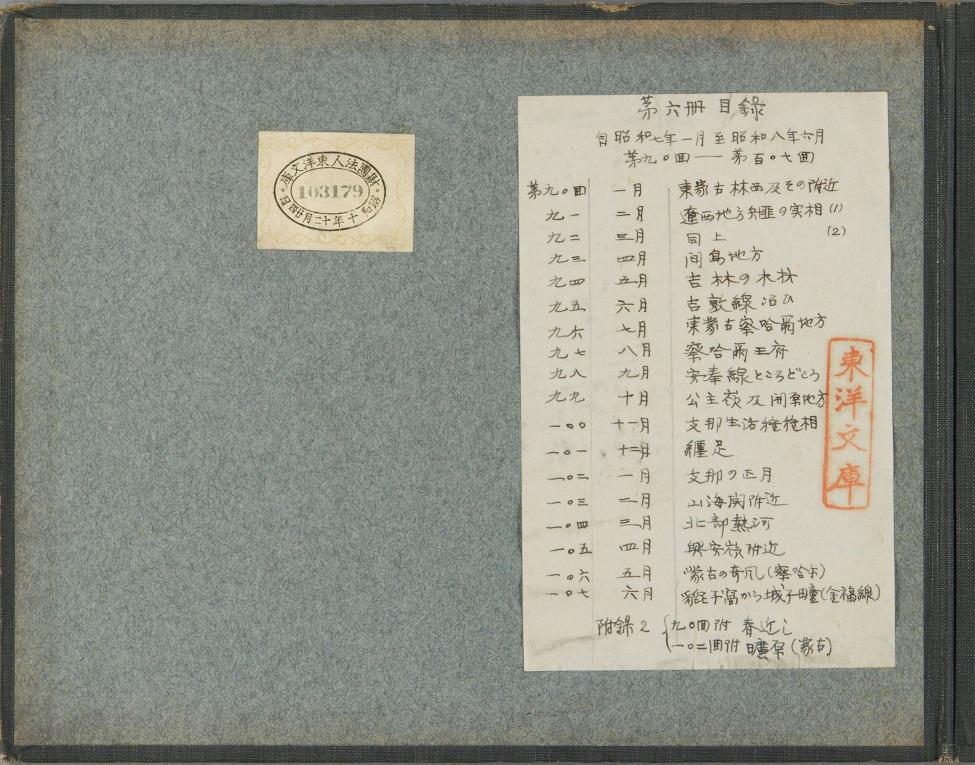 財團法人東洋文庫
103179
昭和十年十二月廿四日
第六冊 目錄
自昭和七年一月至昭和八年六月
第九〇回——第百〇七回
第九〇回 一月 東蒙古林西及その附近
九一 二月 遼西地方兵匪の実相(1)
九二 三月 同上 (2)
九三 四月 間島地方
九四 五月 吉林の木材
九五 六月 吉敦線沿ひ
九六 七月 東蒙古察哈爾地方
九七 八月 察哈爾王府
九八 九月 安奉線ところどころ
九九 十月 公主嶺及開原地方
一〇〇 十一月 支那生活種種相
一〇一 十二月 纏足
一〇二 一月 支那の正月
一〇三 二月 山海関附近
一〇四 三月 北部熱河
一〇五 四月 興安嶺附近
一〇六 五月 蒙古の奇風(察哈尔)
一〇七 六月 貔子窩から城子疃(金福線)
附錄2 {九〇回附 春近し
一〇二回附 曠原(蒙古)
東洋文庫